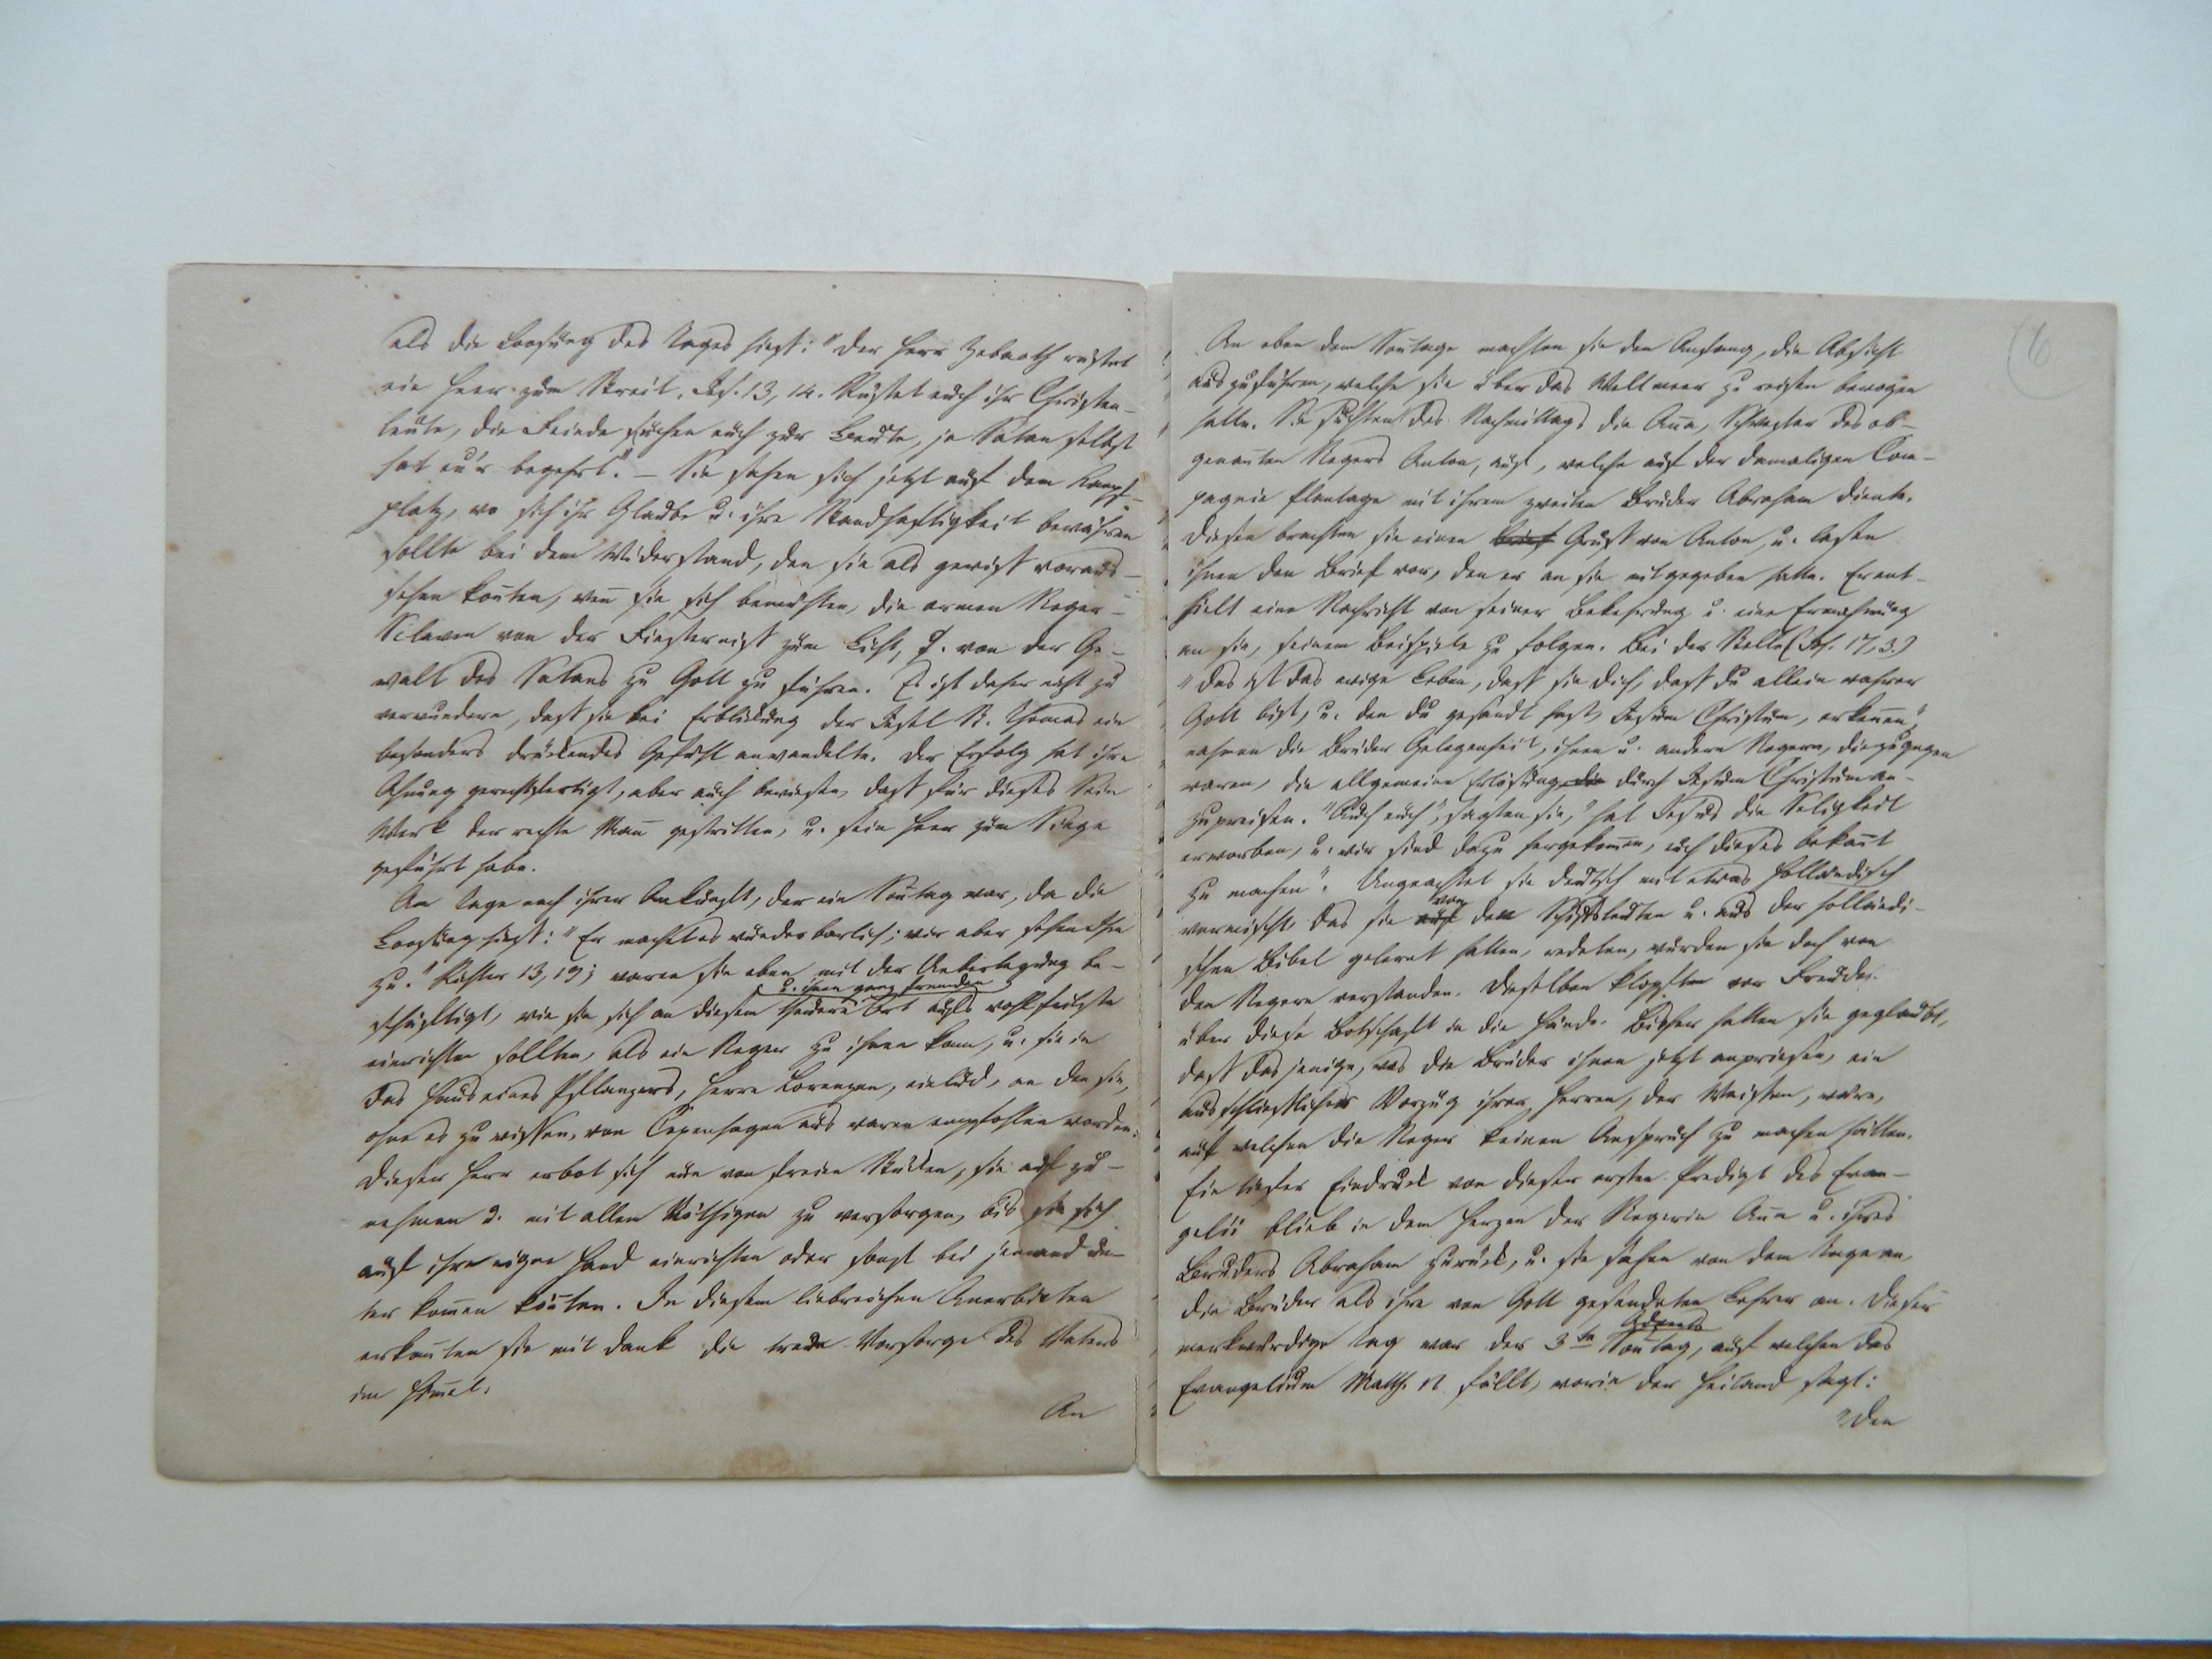 als die Loosung des Tages hieß: "Der Herr Zebaoth rüstet
ein Heer zum Streit. Jes. 13, 14. Rüstet euch ihr Christen-
leute, die Feinde suchen euch zur Beute, ja Satan selbst
hat eu'r begehrt." – Sie sahen sich jetzt auf dem Kampf-
platz, wo sich ihr Glaube u. ihre Standhaftigkeit bewähren
sollte bei dem Widerstand, den sie als gewiß voraus-
sehen konnten, wenn sie sich bemühten, die armen Neger-
Sclaven von der Finsterniß zum Licht, u. von der Ge-
walt des Satans zu Gott zu führen. Es ist daher nicht zu
verwundern, daß sie bei Erblickung der Insel St. Thomas ein
besonders drückendes Gefühl anwandelte. Der Erfolg hat ihre
Ahnung gerechtfertigt, aber auch bewiesen, daß für dieses Sein
Werk der rechte Mann gestritten, u. sein Heer zum Siege
geführt habe.
Am Tage nach ihrer Ankunft, der ein Sonntag war, da die
Loosung hieß: "Er macht es wunderbarlich; wir aber sehen ihm
zu." Richter 13, 19; waren sie eben mit der Ueberlegung be-
u. ihnen ganz fremden
schäftigt, wie sie sich an diesem theuern Ort aufs wohlfeilste
einrichten sollten, als ein Neger zu ihnen kam, u. sie in
das Haus eines Pflanzers, Herrn Lorenzen, einlud, an den sie,
ohne es zu wissen, von Copenhagen aus waren empfohlen worden.
Dieser Herr erbot sich nun von freien Stücken, sie auf zu-
nehmen u. mit allem Nöthigen zu versorgen, bis sie sich
auf ihre eigne Hand einrichten oder sonst bei jemand un-
ter kommen könnten. In diesem liebreichen Anerbieten
erkannten sie mit Dank die treue Vorsorge des Vaters
im Himmel.
An
6
An eben dem Sonntage machten sie den Anfang, die Absicht
auszuführen, welche sie über das Weltmeer zu reisen bewogen
hatte. Sie suchten des Nachmittags die Anna, Schwester des ob-
genannten Negers Anton, auf, welche auf der damaligen Com-
pagnie Plantage mit ihrem zweiten Bruder Abraham diente.
Diesen brachten sie einen Brief Gruß von Anton, u. lasen
ihnen den Brief vor, den er an sie mitgegeben hatte. Er ent-
hielt eine Nachricht von seiner Bekehrung u. eine Ermahnung
an sie, seinem Beispiele zu folgen. Bei der Stelle (Joh. 17, 3.)
"Das ist das ewige Leben, daß sie dich, daß du allein wahrer
Gott bist, u. den du gesandt hast, Jesum Christum, erkennen",
nahmen die Brüder Gelegenheit, ihnen u. andern Negern, die zugegen
waren, die allgemeine Erlösung die durch Jesum Christum an-
zupreisen. "Auch euch", sagten sie, "hat Jesus die Seligkeit
erworben, u. wir sind dazu hergekommen, euch dieses bekannt
zu machen". Ungeachtet sie deutsch mit etwas holländisch
von
vermischt, das sie auf den Schiffsleuten u. aus der holländi-
schen Bibel gelernt hatten, redeten, wurden sie doch von
den Negern verstanden. Dieselben klopften vor Freude
über diese Botschaft in die Hände. Bisher hatten sie geglaubt,
daß dasjenige, was die Brüder ihnen jetzt anpriesen, ein
ausschließlicher Vorzug ihrer Herren, der Weißen, wäre,
auf welchen die Neger keinen Anspruch zu machen hätten.
Ein tiefer Eindruck von dieser ersten Predigt des Evan-
gelii blieb in dem Herzen der Negerin Anna u. ihres
Bruders Abraham zurück, u. sie sahen von dem Tage an,
die Brüder als ihre von Gott gesendeten Lehrer an. Dieser
Advents
merkwürdige Tag war der 3te Sonntag, auf welchen das
Evangelium Matth. 11 fällt, worin der Heiland sagt:
"Den